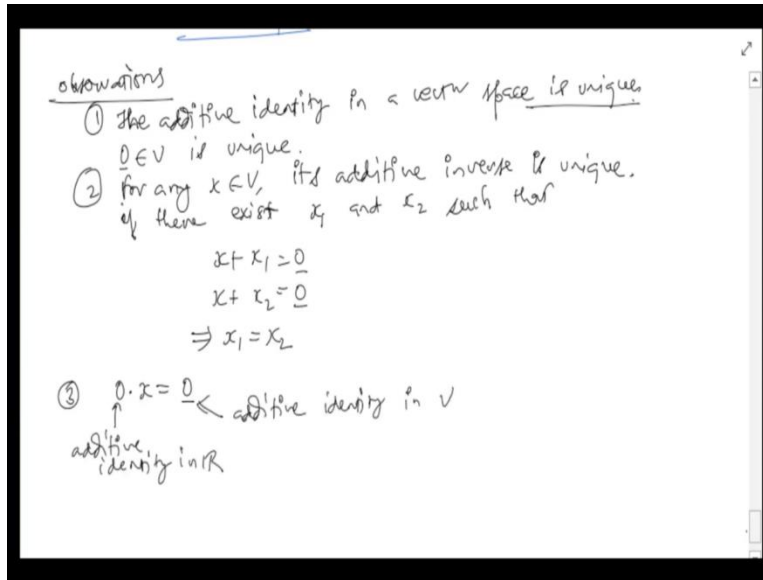 observations
① The additive identity in a vector space is unique.
0 ∈ V is unique.
② for any x ∈ V, its additive inverse is unique.
if there exist x₁ and x₂ such that
x + x₁ = 0
x + x₂ = 0
⇒ x₁ = x₂
③ 0 · x = 0 ← additive identity in V
↑
additive
identity in ℝ